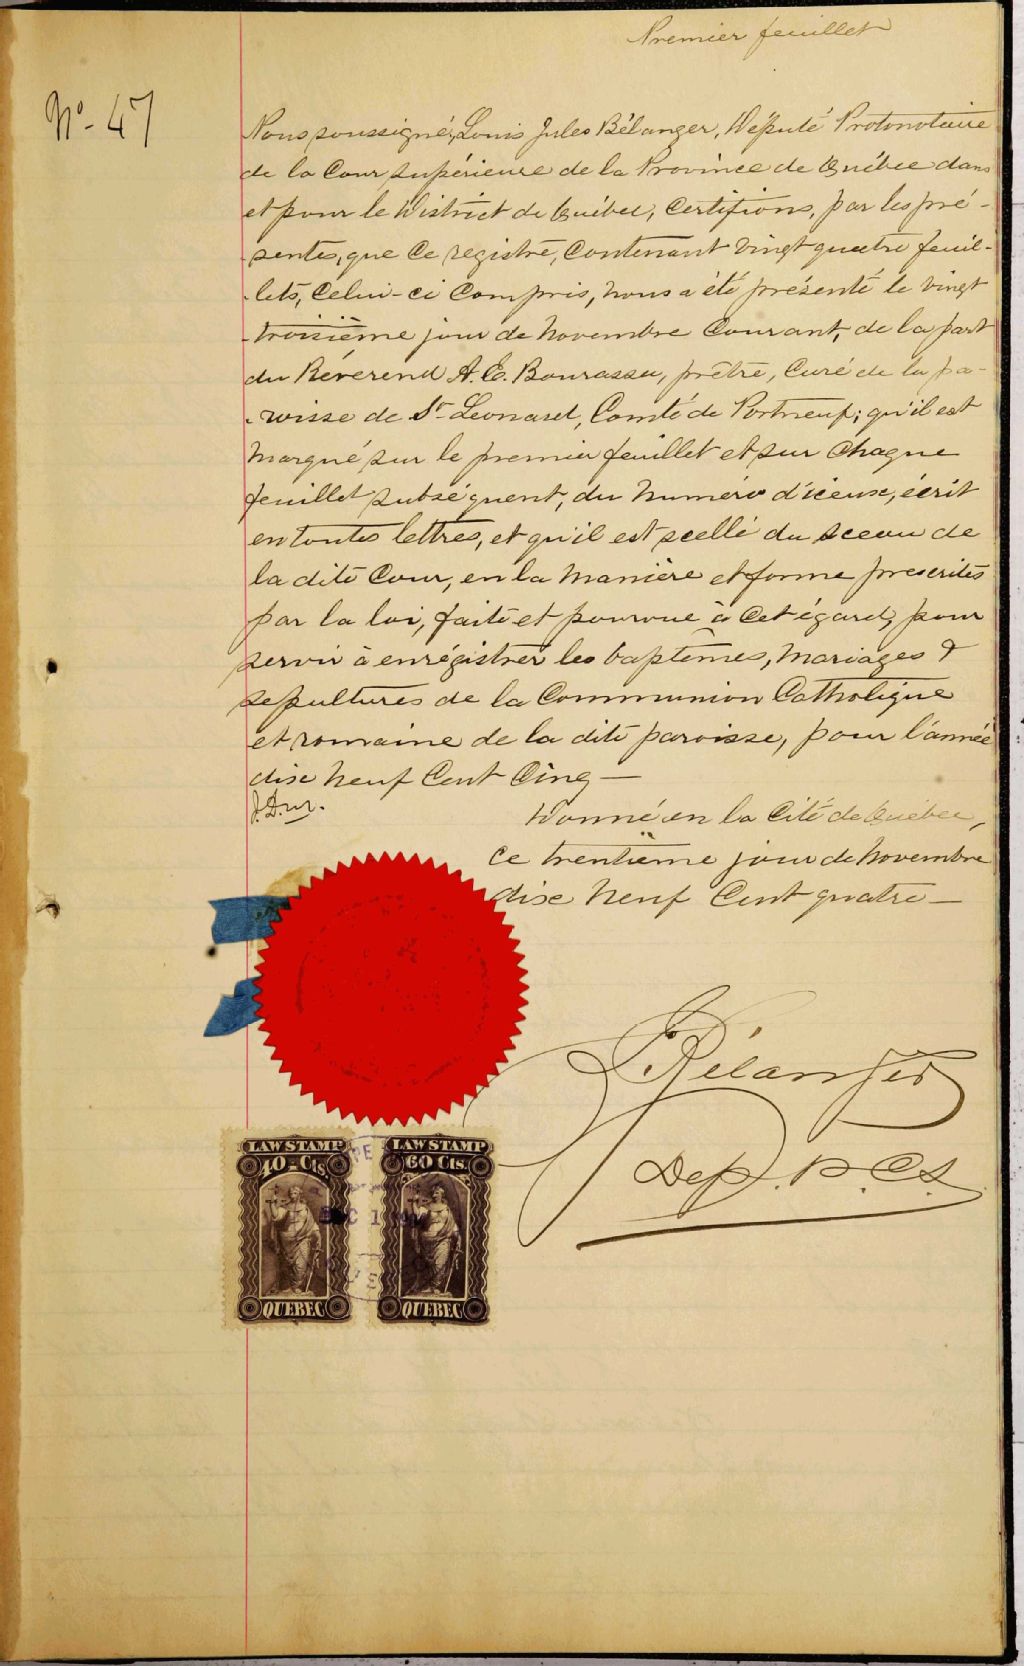 Premier feuillet
No - 47
Nous soussigné, Louis Jules Bélanger, Député Protonotaire
de la Cour supérieure de la Province de Québec dans
et pour le District de Québec, Certifions, par les pré-
-sentes, que ce registre, contenant vingt quatre feuil-
-lets, celui-ci compris, nous a été présenté le vingt
-troisième jour de Novembre Courant, de la part
du Révérend A. E. Bourassa, prêtre, Curé de la pa-
-roisse de St Léonard, Comté de Portneuf; qu'il est
marqué sur le premier feuillet et sur chaque
feuillet subséquent, du numéro d'iceux, écrit
en toutes lettres, et qu'il est scellé du sceau de
la dite Cour, en la manière et forme prescrites
par la loi, faite et pourvue à cet égard, pour
servir à enrégistrer les baptêmes, mariages &
sépultures de la Communion Catholique
et romaine de la dite paroisse, pour l'année
dixe neuf Cent Cinq —
Donné en la Cité de Québec,
ce trentième jour de Novembre
dixe neuf Cent quatre —
Bélanger
Dep. P. C. S.
LAW STAMP LAW STAMP
40 Cts. 60 Cts.
DEC 1
QUEBEC QUEBEC